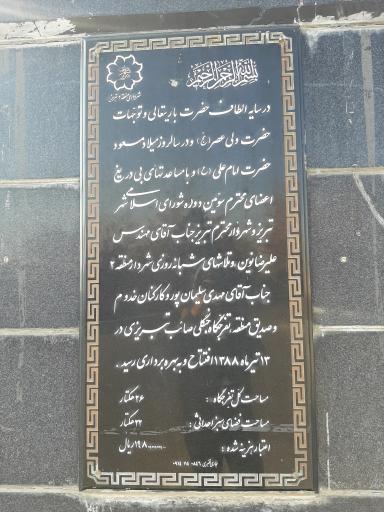 بسم الله الرحمن الرحیم
در سایه الطاف حضرت باریتعالی و توجهات
حضرت ولی عصر (عج) و در سالروز میلاد مسعود
حضرت امام علی (ع) و با مساعدتهای بی دریغ
اعضای محترم سومین دوره شورای اسلامی شهر
تبریز و شهردار محترم تبریز جناب آقای مهندس
علیرضا نوین ، و تلاشهای شبانه روزی شهردار منطقه ۲
جناب آقای مهدی سلیمان پور و کارکنان خدوم
و صدیق منطقه ، تفرجگاه جنگلی صائب تبریزی در
۱۳ تیرماه ۱۳۸۸ افتتاح و به بهره برداری رسید .
مساحت کل تفرجگاه : ۲۶ هکتار
مساحت فضای سبز احداثی : ۲۲ هکتار
اعتبار هزینه شده : ریال